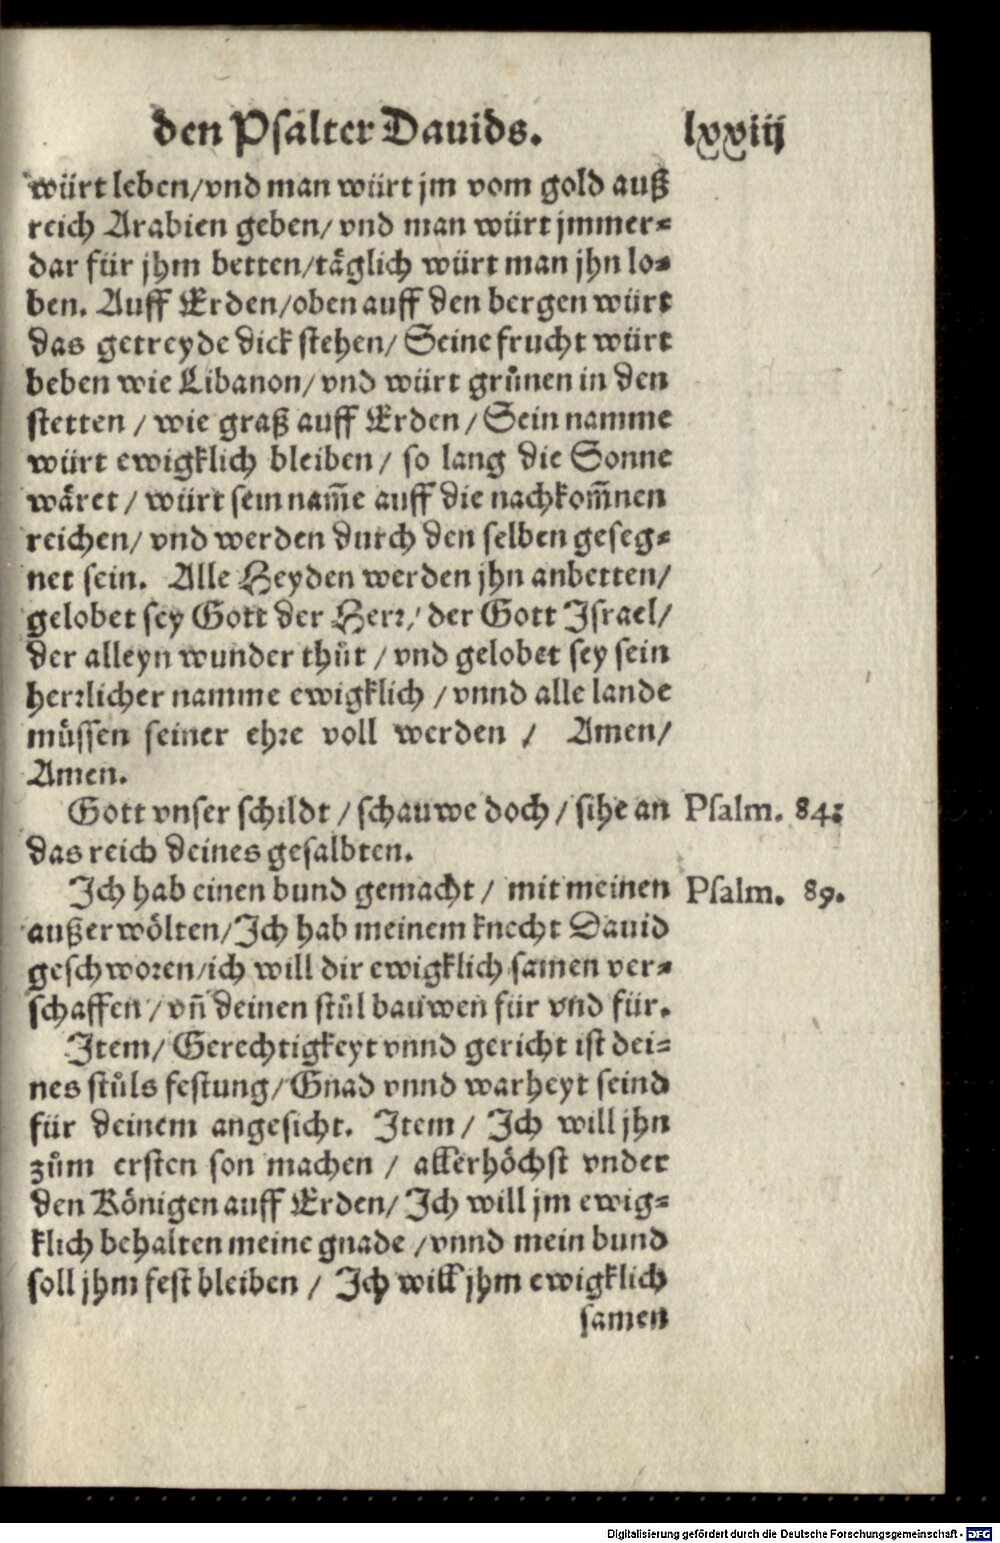 den Psalter Dauids. lxxiij
würt leben/vnd man würt jm vom gold auß
reich Arabien geben/ vnd man würt jmmer⸗
dar für jhm betten/täglich würt man jhn lo⸗
ben. Auff Erden/oben auff den bergen würt
das getreyde dick stehen/ Seine frucht würt
beben wie Libanon/ vnd würt grůnen in den
stetten / wie graß auff Erden / Sein namme
würt ewigklich bleiben / so lang die Sonne
wäret / würt sein nam̃e auff die nachkom̃nen
reichen/ vnd werden durch den selben geseg⸗
net sein. Alle Heyden werden jhn anbetten/
gelobet sey Gott der Herr/ der Gott Israel/
der alleyn wunder thůt / vnd gelobet sey sein
herrlicher namme ewigklich / vnnd alle lande
můssen seiner ehre voll werden / Amen/
Amen.
Gott vnser schildt / schauwe doch / sihe an Psalm. 84:
das reich deines gesalbten.
Ich hab einen bund gemacht / mit meinen Psalm. 89.
außerwölten/Ich hab meinem knecht Dauid
geschworen/ich will dir ewigklich samen ver⸗
schaffen / vñ deinen stůl bauwen für vnd für.
Item/ Gerechtigkeyt vnnd gericht ist dei⸗
nes stůls festung/Gnad vnnd warheyt seind
für deinem angesicht. Item/ Ich will jhn
zům ersten son machen / allerhöchst vnder
den Königen auff Erden/ Ich will jm ewig⸗
klich behalten meine gnade / vnnd mein bund
soll jhm fest bleiben / Ich will jhm ewigklich
samen
Digitalisierung gefördert durch die Deutsche Forschungsgemeinschaft - DFG